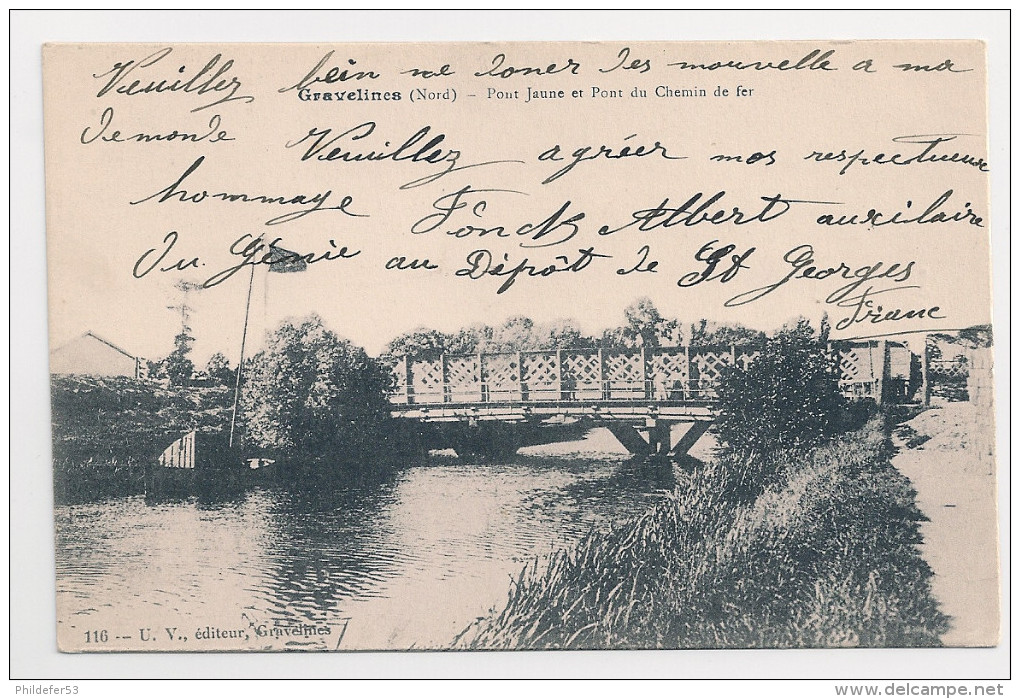 Veuillez bein me doner des mouvelle a ma
Gravelines (Nord) – Pont Jaune et Pont du Chemin de fer
demonde Veuillez agréer mos respectueuse
hommage Fônck Albert auxilaire
du Génie au Dépôt de St Georges
Franc
116 -- U. V., éditeur, Gravelines
Phildefer53
www.delcampe.net